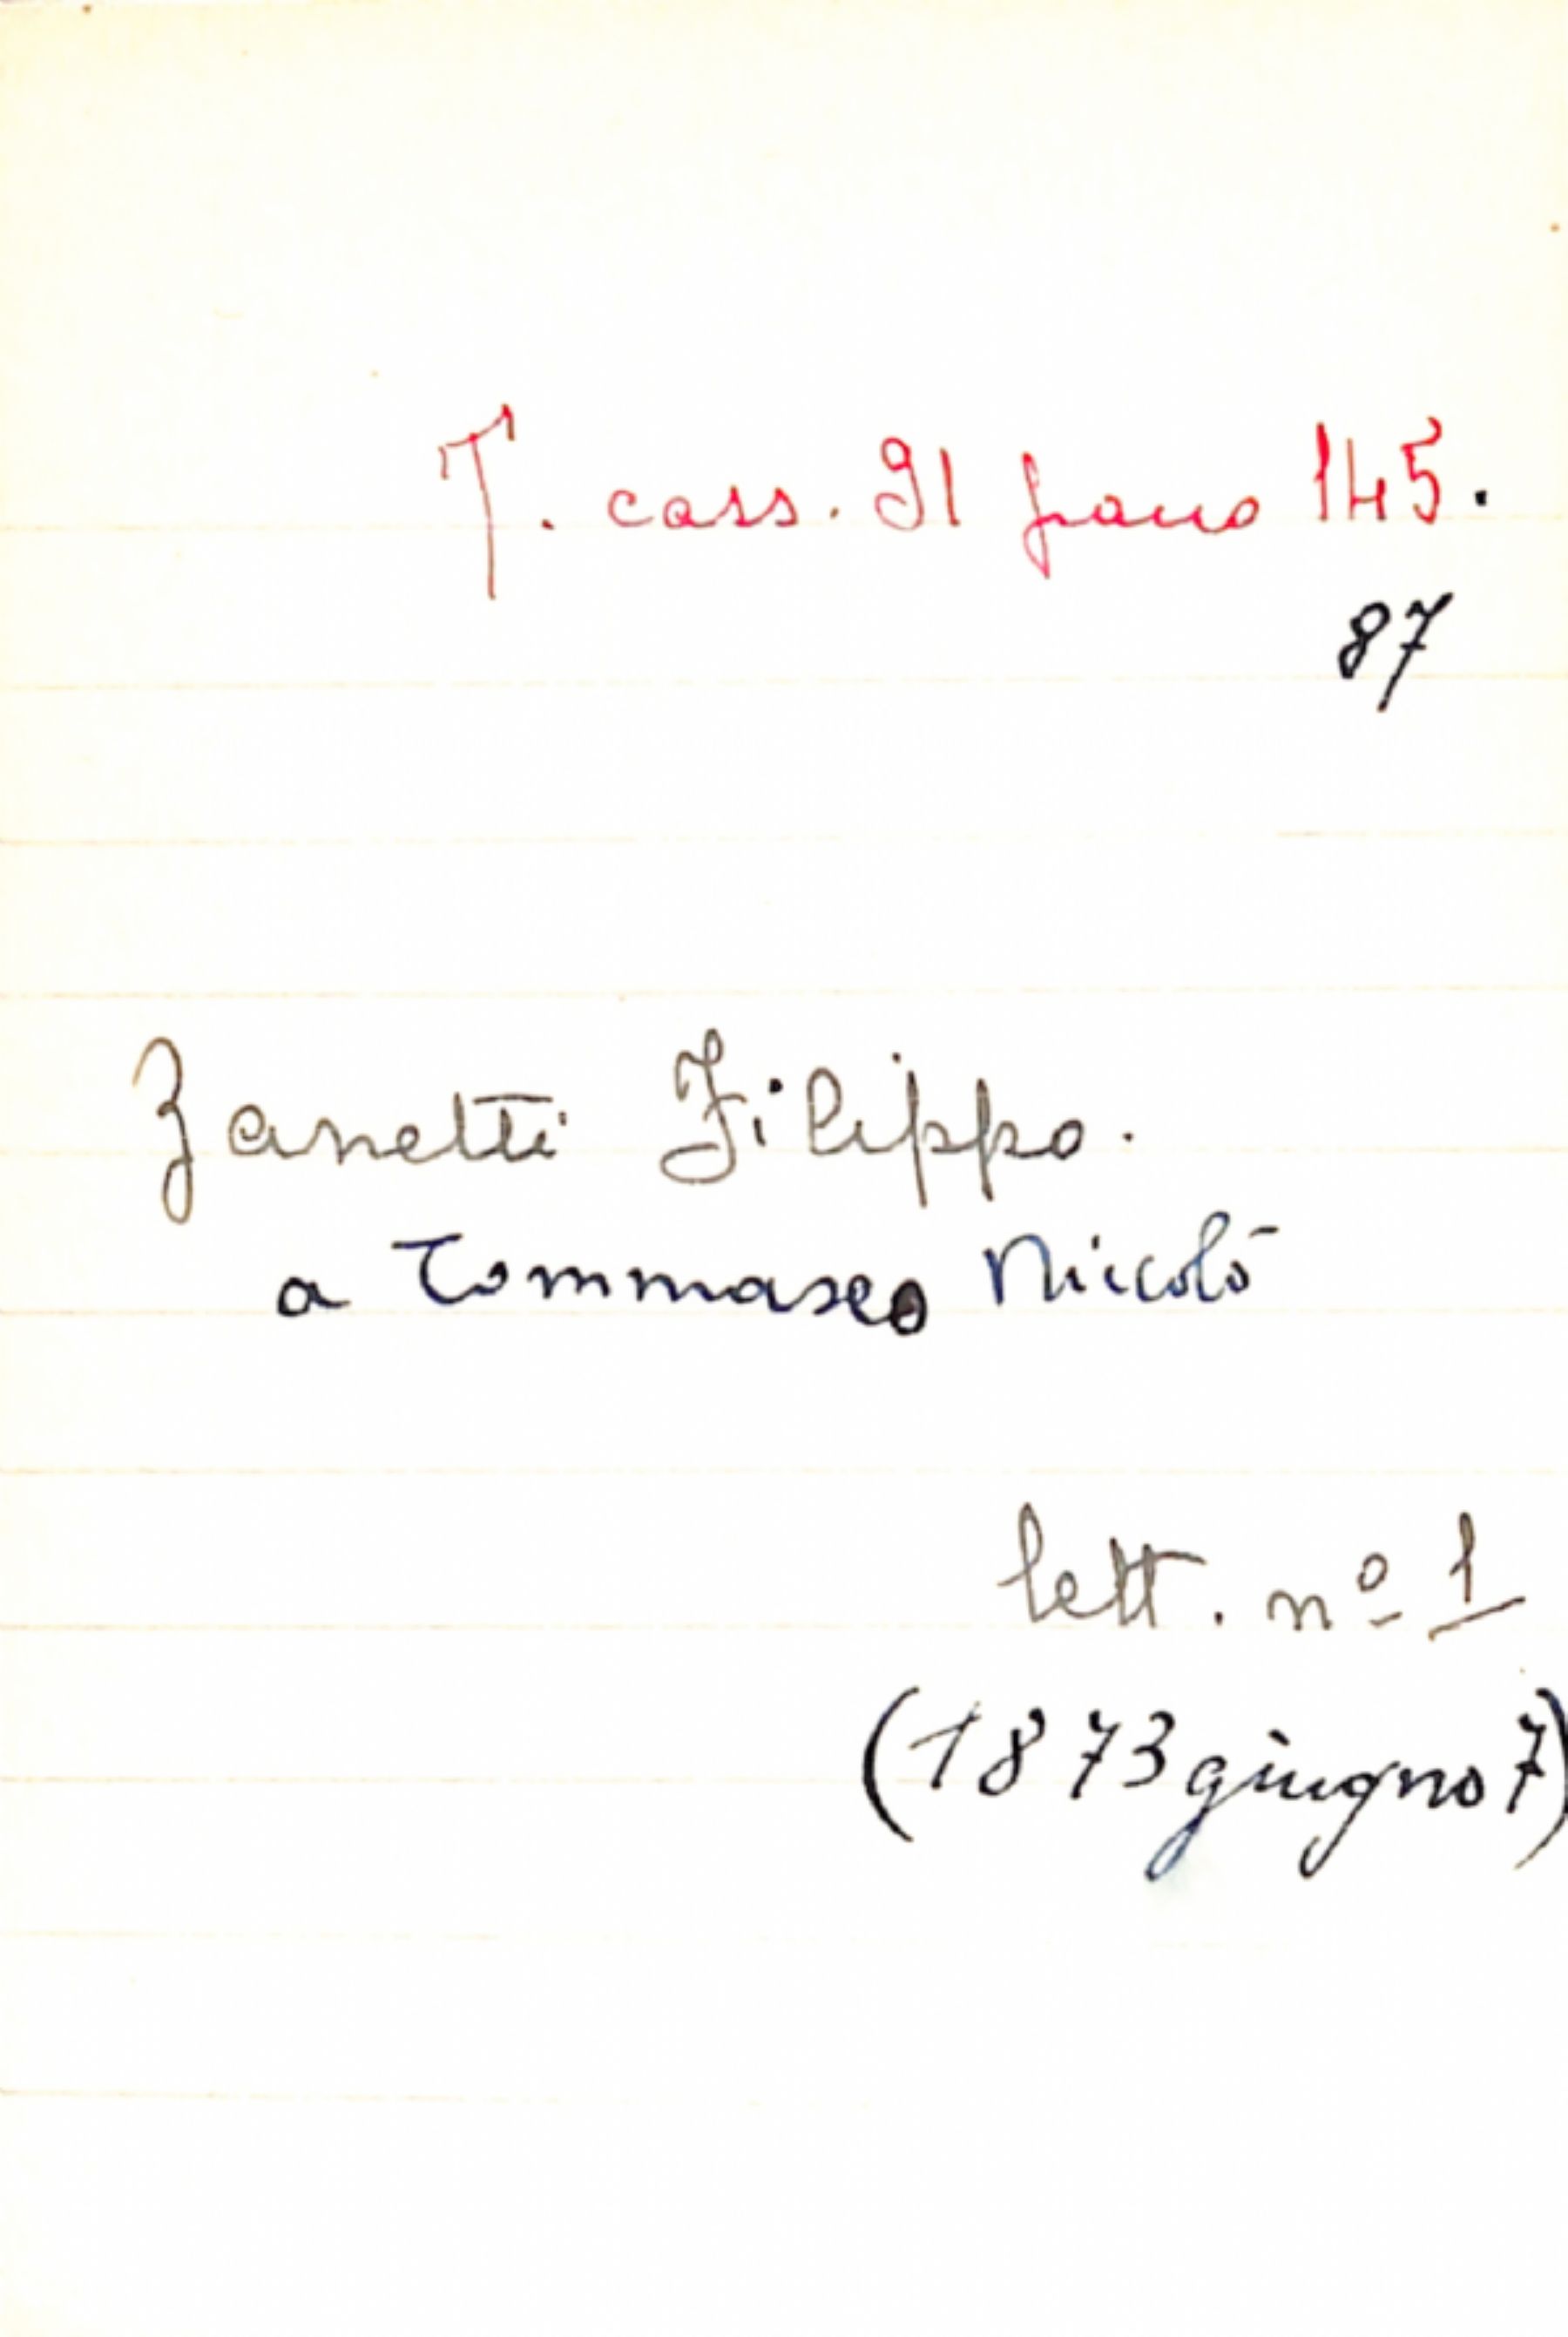 T. cass. 91 panno 145.
87
Zanetti Filippo.
a Tommaseo Niccolò
lett. nº 1
(1873 giugno 7)